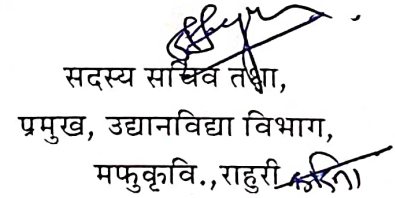 सदस्य सचिव तथा,
प्रमुख, उद्यानविद्या विभाग,
मफुकृवि.,राहुरी करिता